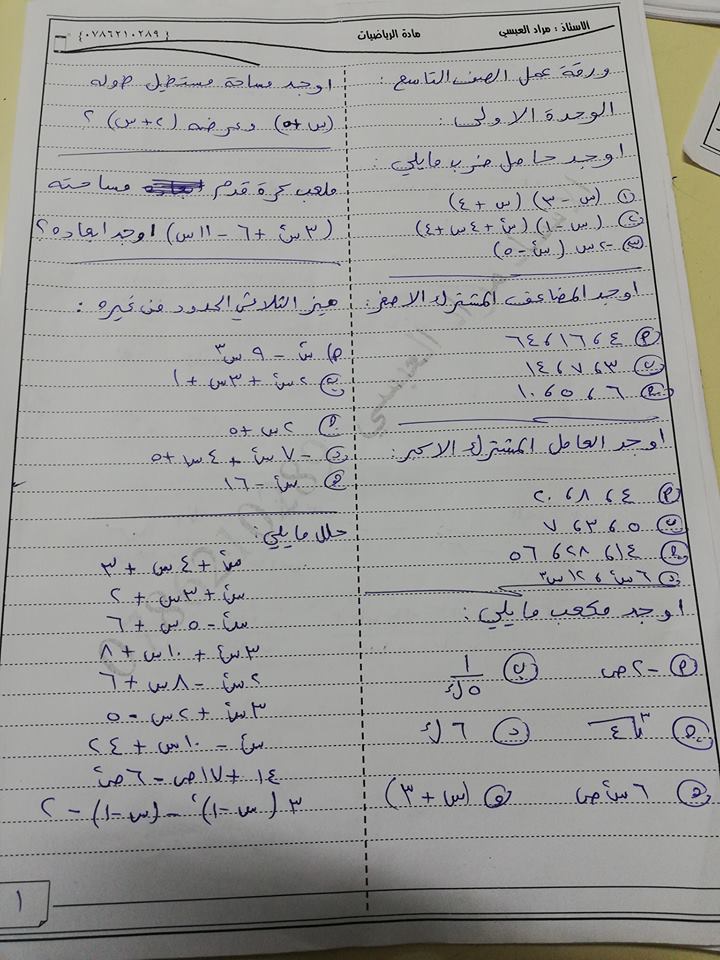 الاستاذ : مراد العبسي
مادة الرياضيات
{٠٧٨٦٢١٠٢٨٩}
ورقة عمل الصف التاسع :
الوحدة الاولى :
اوجد حاصل ضرب مايلي :
① (س - ٣) (س + ٤)
② (س - ١) (س٢ + ٤س + ٤)
③ -٢س (س٢ - ٥)
اوجد المضاعف المشترك الاصغر :
أ ٤ ، ١٦ ، ٦٤
ب ٣ ، ٧ ، ١٤
ج ٦ ، ٥ ، ١٠
اوجد العامل المشترك الاكبر :
أ ٤ ، ٨ ، ٢٠
ب ٥ ، ٣ ، ٧
ج ١٤ ، ٢٨ ، ٥٦
د ٦س٢ ، ١٢س٣
اوجد مكعب مايلي :
أ -٢ص
ب ١/٥
د ٦
هـ ٦س٢ص
و (س + ٣)
اوجد مساحة مستطيل طوله
(س + ٥) وعرضه (٢ + س) ؟
ملعب كرة قدم مساحته
(٣س٢ + ٦ - ١١س) اوجد ابعاده ؟
ميز الثلاثي الحدود من غيره :
س٢ - ٩س٣
ب ٢س٢ + ٣س + ١
ج ٢س + ٥
د -٧س٢ + ٤س + ٥
هـ س٢ - ١٦
حلل مايلي :
س٢ + ٤س + ٣
س٢ + ٣س + ٢
س٢ - ٥س + ٦
٣س٢ + ١٠س + ٨
٢س٢ - ٨س + ٦
٣س٢ + ٢س - ٥
س٢ - ١٠س + ٢٤
١٤ + ١٧ص - ٦ص٢
٣(س - ١)٢ - (س - ١) - ٢
١
مراد العبسي
0786210289